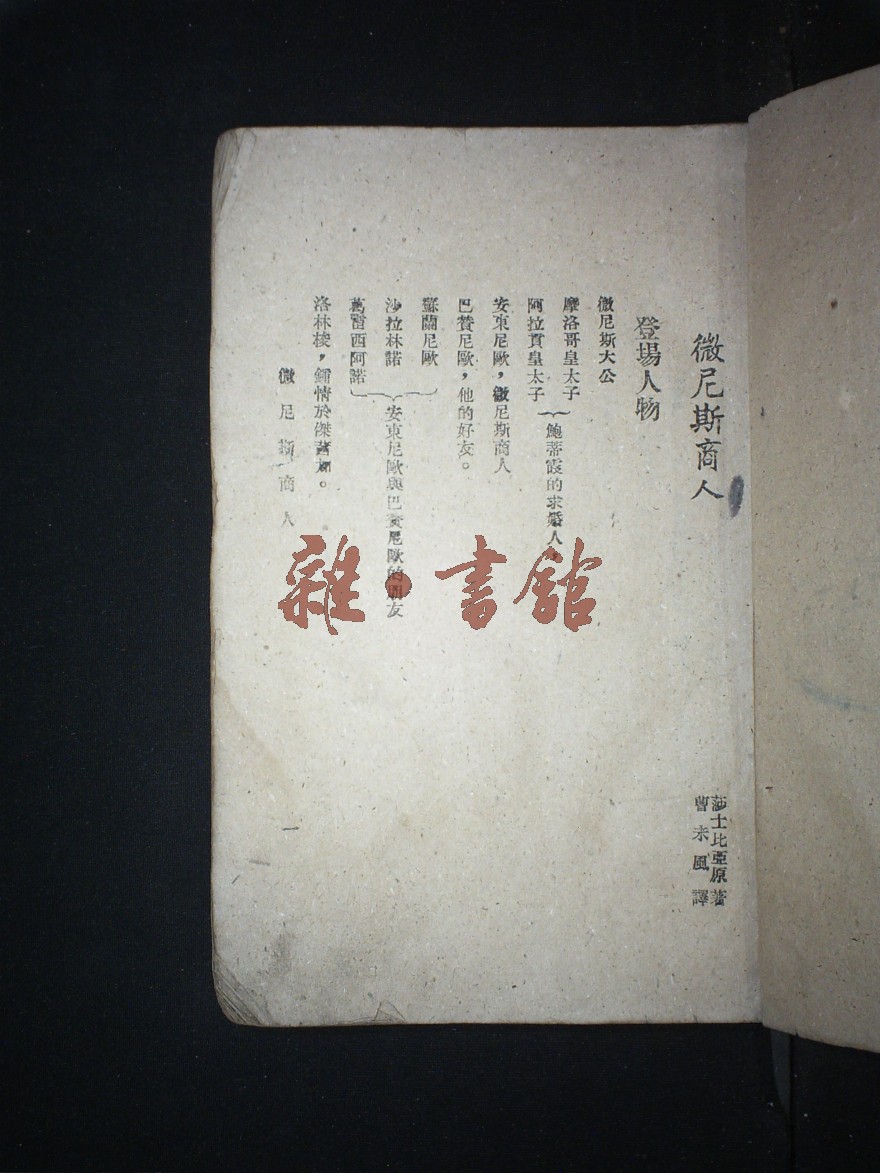 微尼斯商人
莎士比亞原著
曹未風譯
登場人物
微尼斯大公
摩洛哥皇太子
阿拉貢皇太子
鮑蒂霞的求婚人。
安東尼歐，微尼斯商人
巴賛尼歐，他的好友。
蘇蘭尼歐
沙拉林諾
葛雷西阿諾
安東尼歐與巴賛尼歐的朋友
洛林梭，鍾情於傑
微尼斯商人
一
雜·書館